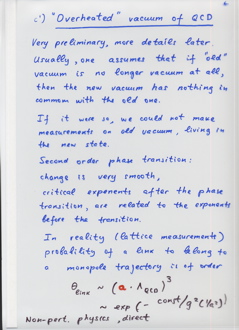 c') "Overheated" vacuum of QCD
Very preliminary, more details later.
Usually, one assumes that if "old"
vacuum is no longer vacuum at all,
then the new vacuum has nothing in
common with the old one.
If it were so, we could not make
measurements on old vacuum, living in
the new state.
Second order phase transition:
change is very smooth,
critical exponents after the phase
transition, are related to the exponents
before the transition.
In reality (lattice measurements)
probability of a link to belong to
a monopole trajectory is of order
θ_link ~ (a · Λ_QCD)^3
~ exp (- const/g^2(1/a^2))
Non-pert. physics, direct